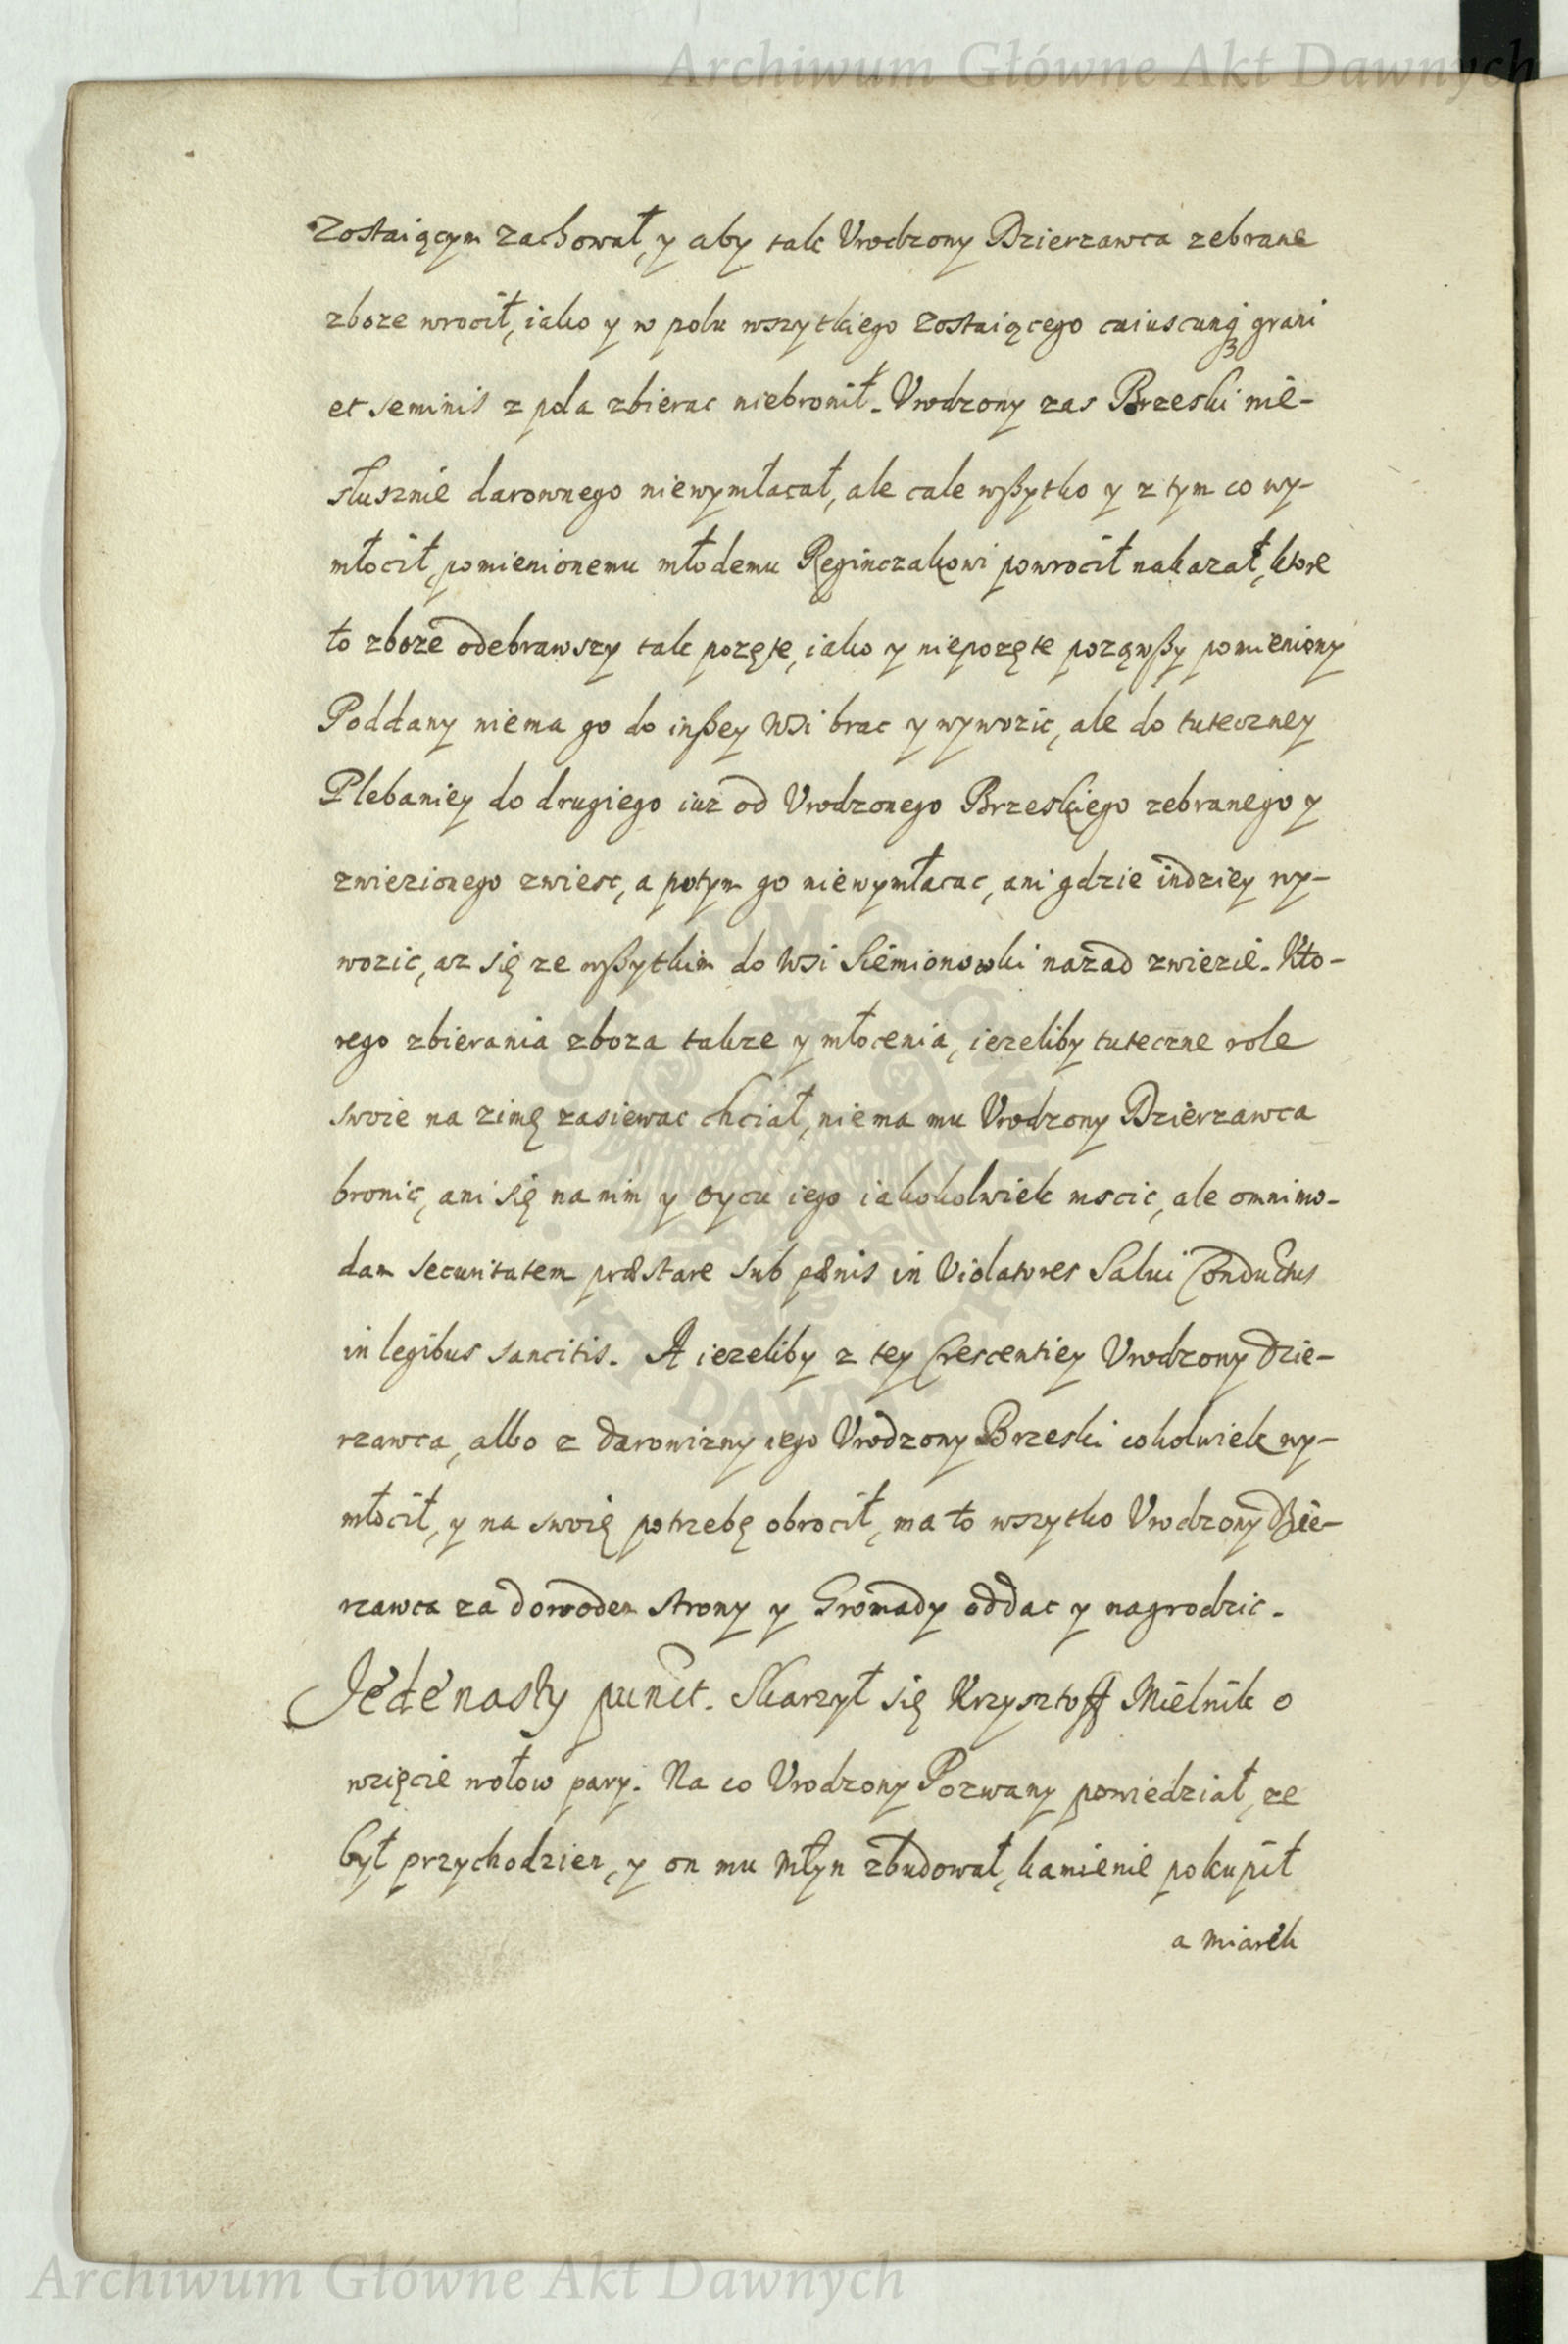 Archiwum Główne Akt Dawnych
Zostaiącym zachował, y aby tak Vrodzony Dzierzawca zebrane
zboze wrocił, iako y w polu wszytkiego zostaiącego cuiuscunqꝫ grani
et seminis z pola zbierac niebronił. Vrodzony zas Brzeski nie-
słusznie darownego niewymłacał, ale cale wßytko y z tym co wy-
młocił, pomienionemu młodemu Reginczakowi powrocił nakazał, ktore
to zboze odebrawszy tak pozęte, iako y niepozęte poząwßy pomieniony
Poddany niema go do inßey Wsi brac y wywozic, ale do tuteczney
Plebaniey do drugiego iuz od Vrodzonego Brzeskiego zebranego y
zwiezionego zwiesc, a potym go niewymłacac, ani gdzie indziey wy-
wozic, az się ze wßytkim do Wsi Siemionowki nazad zwiezie. Kto-
rego zbierania zboza takze y młocenia, iezeliby tuteczne role
swoie na zimę zasiewac chciał, niema mu Vrodzony Dzierzawca
bronic, ani się na nim y oycu iego iakokolwiek mscic, ale omnimo-
dam securitatem præstare sub pænis in Violatores Salui Conductus
in legibus sancitis. A iezeliby z tey Crescentiey Vrodzony Dzie-
rzawca, albo z darowizny iego Vrodzony Brzeski cokolwiek wy-
młocił, y na swoię potrzebę obrocił, ma to wszytko Vrodzony Dzie-
rzawca za dowodem strony y Gromady oddac y nagrodzic.
Jedenasty punct. Skarzył się Krzysztoff Mielnik o
wzięcie wołow pary. Na co Vrodzony Pozwany powiedział, ze
był przychodzien, y on mu Młyn zbudował, kamienie pokupił
a miarek
Archiwum Główne Akt Dawnych